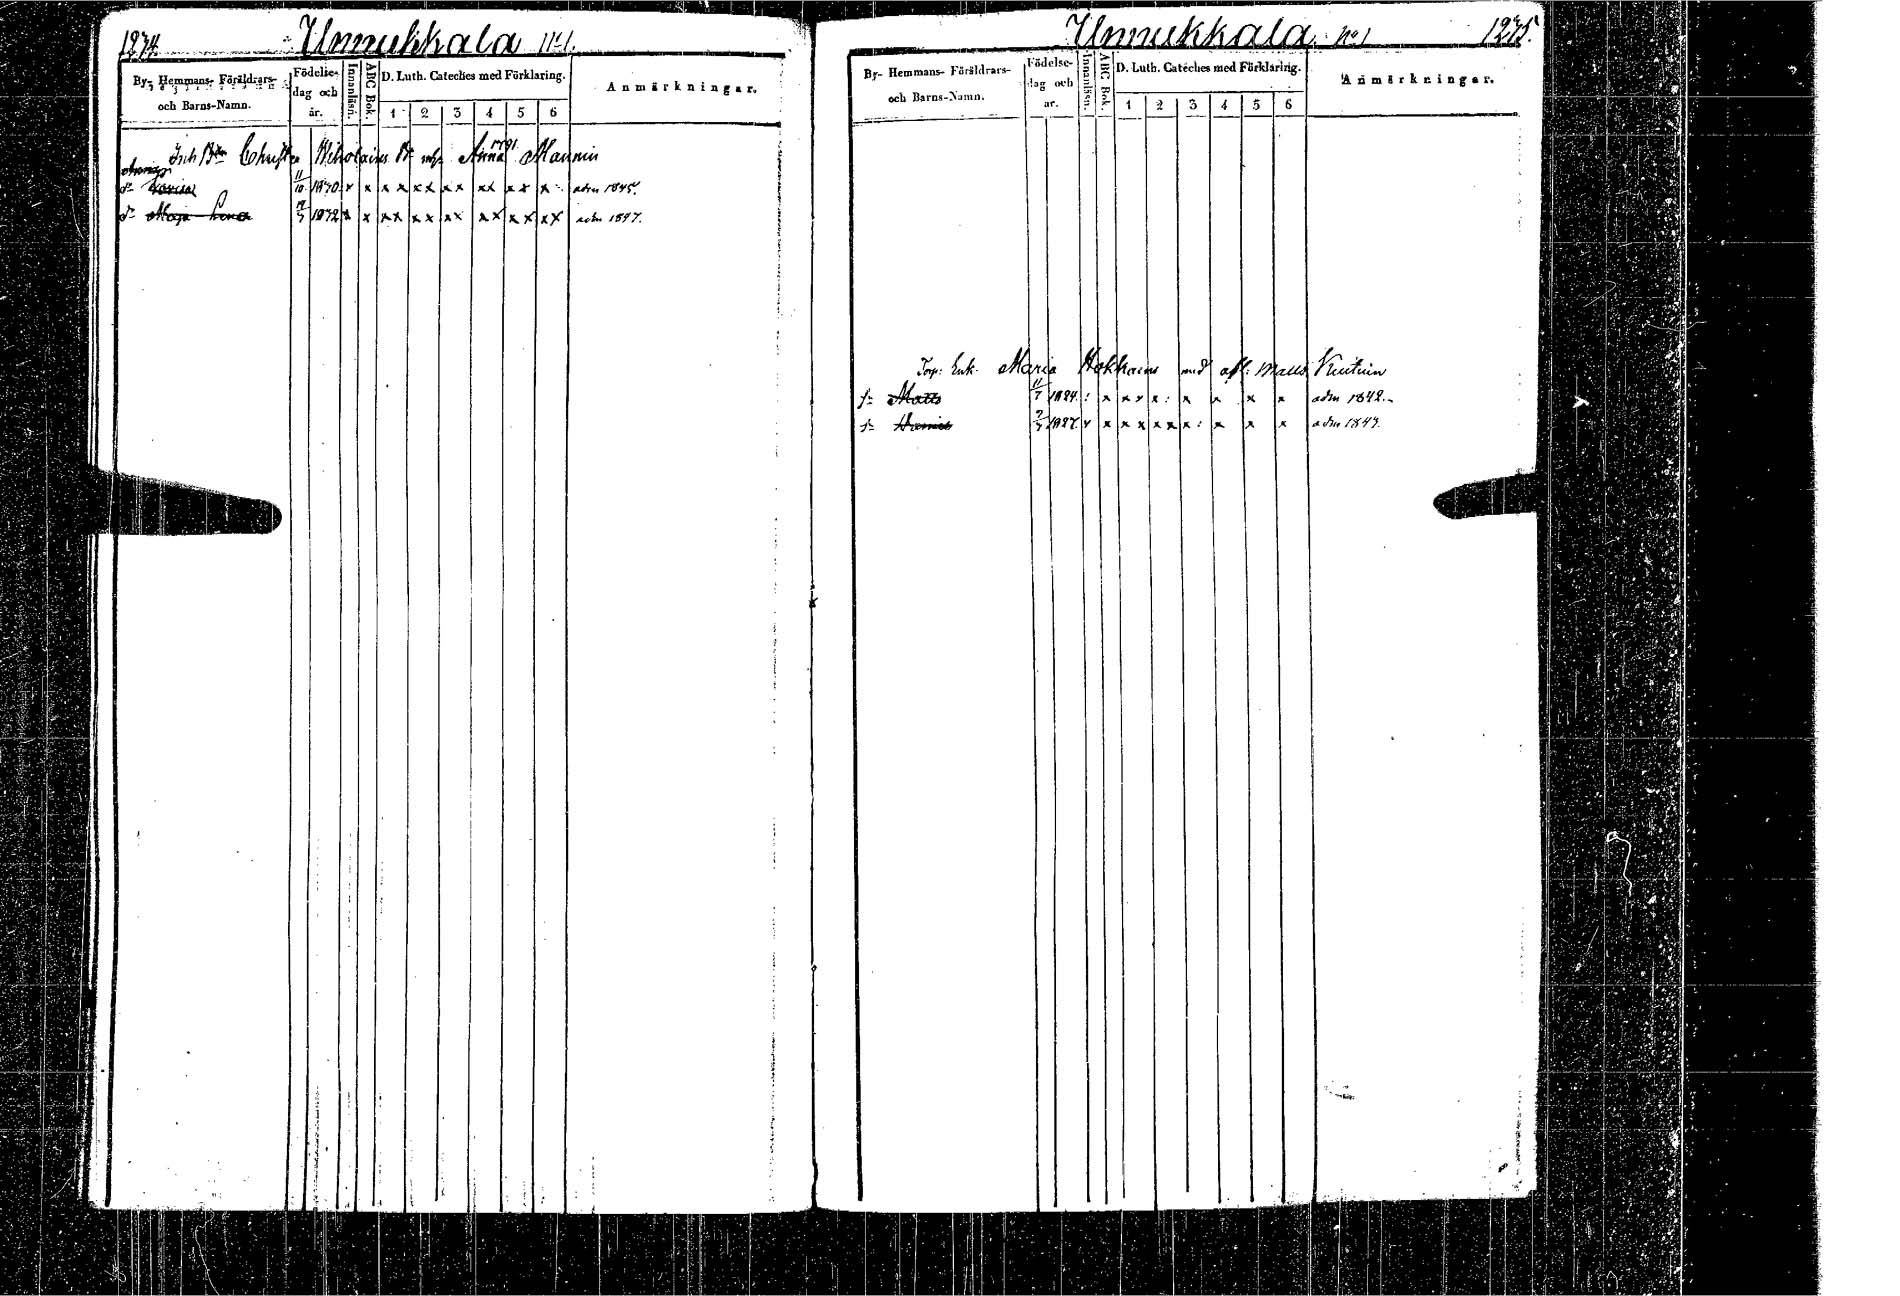 1274. Ummukkala No 1.
By- Hemmans- Föräldrars- och Barns-Namn.
Födelse- dag och år.
Innanläsn.
ABC Bok.
D. Luth. Cateches med Förklaring.
1 2 3 4 5 6
Anmärkningar.
1791
Inh Christer Anna Mannin
dr Lovisa 11/10 1830 x x x x x x x x x x x x x adm 1845.
dr Maja Lena 1832 x x x x x x x x x x x x x x adm 1847.
Ummukkala No 1 1275.
By- Hemmans- Föräldrars- och Barns-Namn.
Födelse- dag och ar.
Innanläsn.
ABC Bok.
D. Luth. Cateches med Förklaring.
1 2 3 4 5 6
Anmärkningar.
Torp. Enk. Maria med afl: Matts
s: Matts 11/7 1824 : x x x x : x x x x adm 1842.
s: 1827 x x x x x x x : x x x adm 1847.